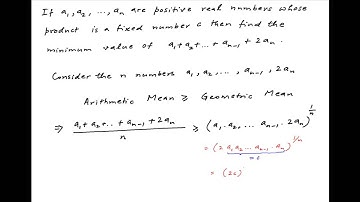 If a₁, a₂, ..., aₙ are positive real numbers whose
product is a fixed number c then find the
minimum value of a₁+a₂+...+aₙ₋₁+2aₙ.
Consider the n numbers a₁, a₂, ..., aₙ₋₁, 2aₙ
Arithmetic Mean ≥ Geometric Mean
⇒ (a₁+a₂+...+aₙ₋₁+2aₙ)/n ≥ (a₁.a₂, ... aₙ₋₁.2aₙ)^(1/n)
= (2 a₁a₂ ... aₙ₋₁.aₙ)^(1/n)
=c
= (2c)